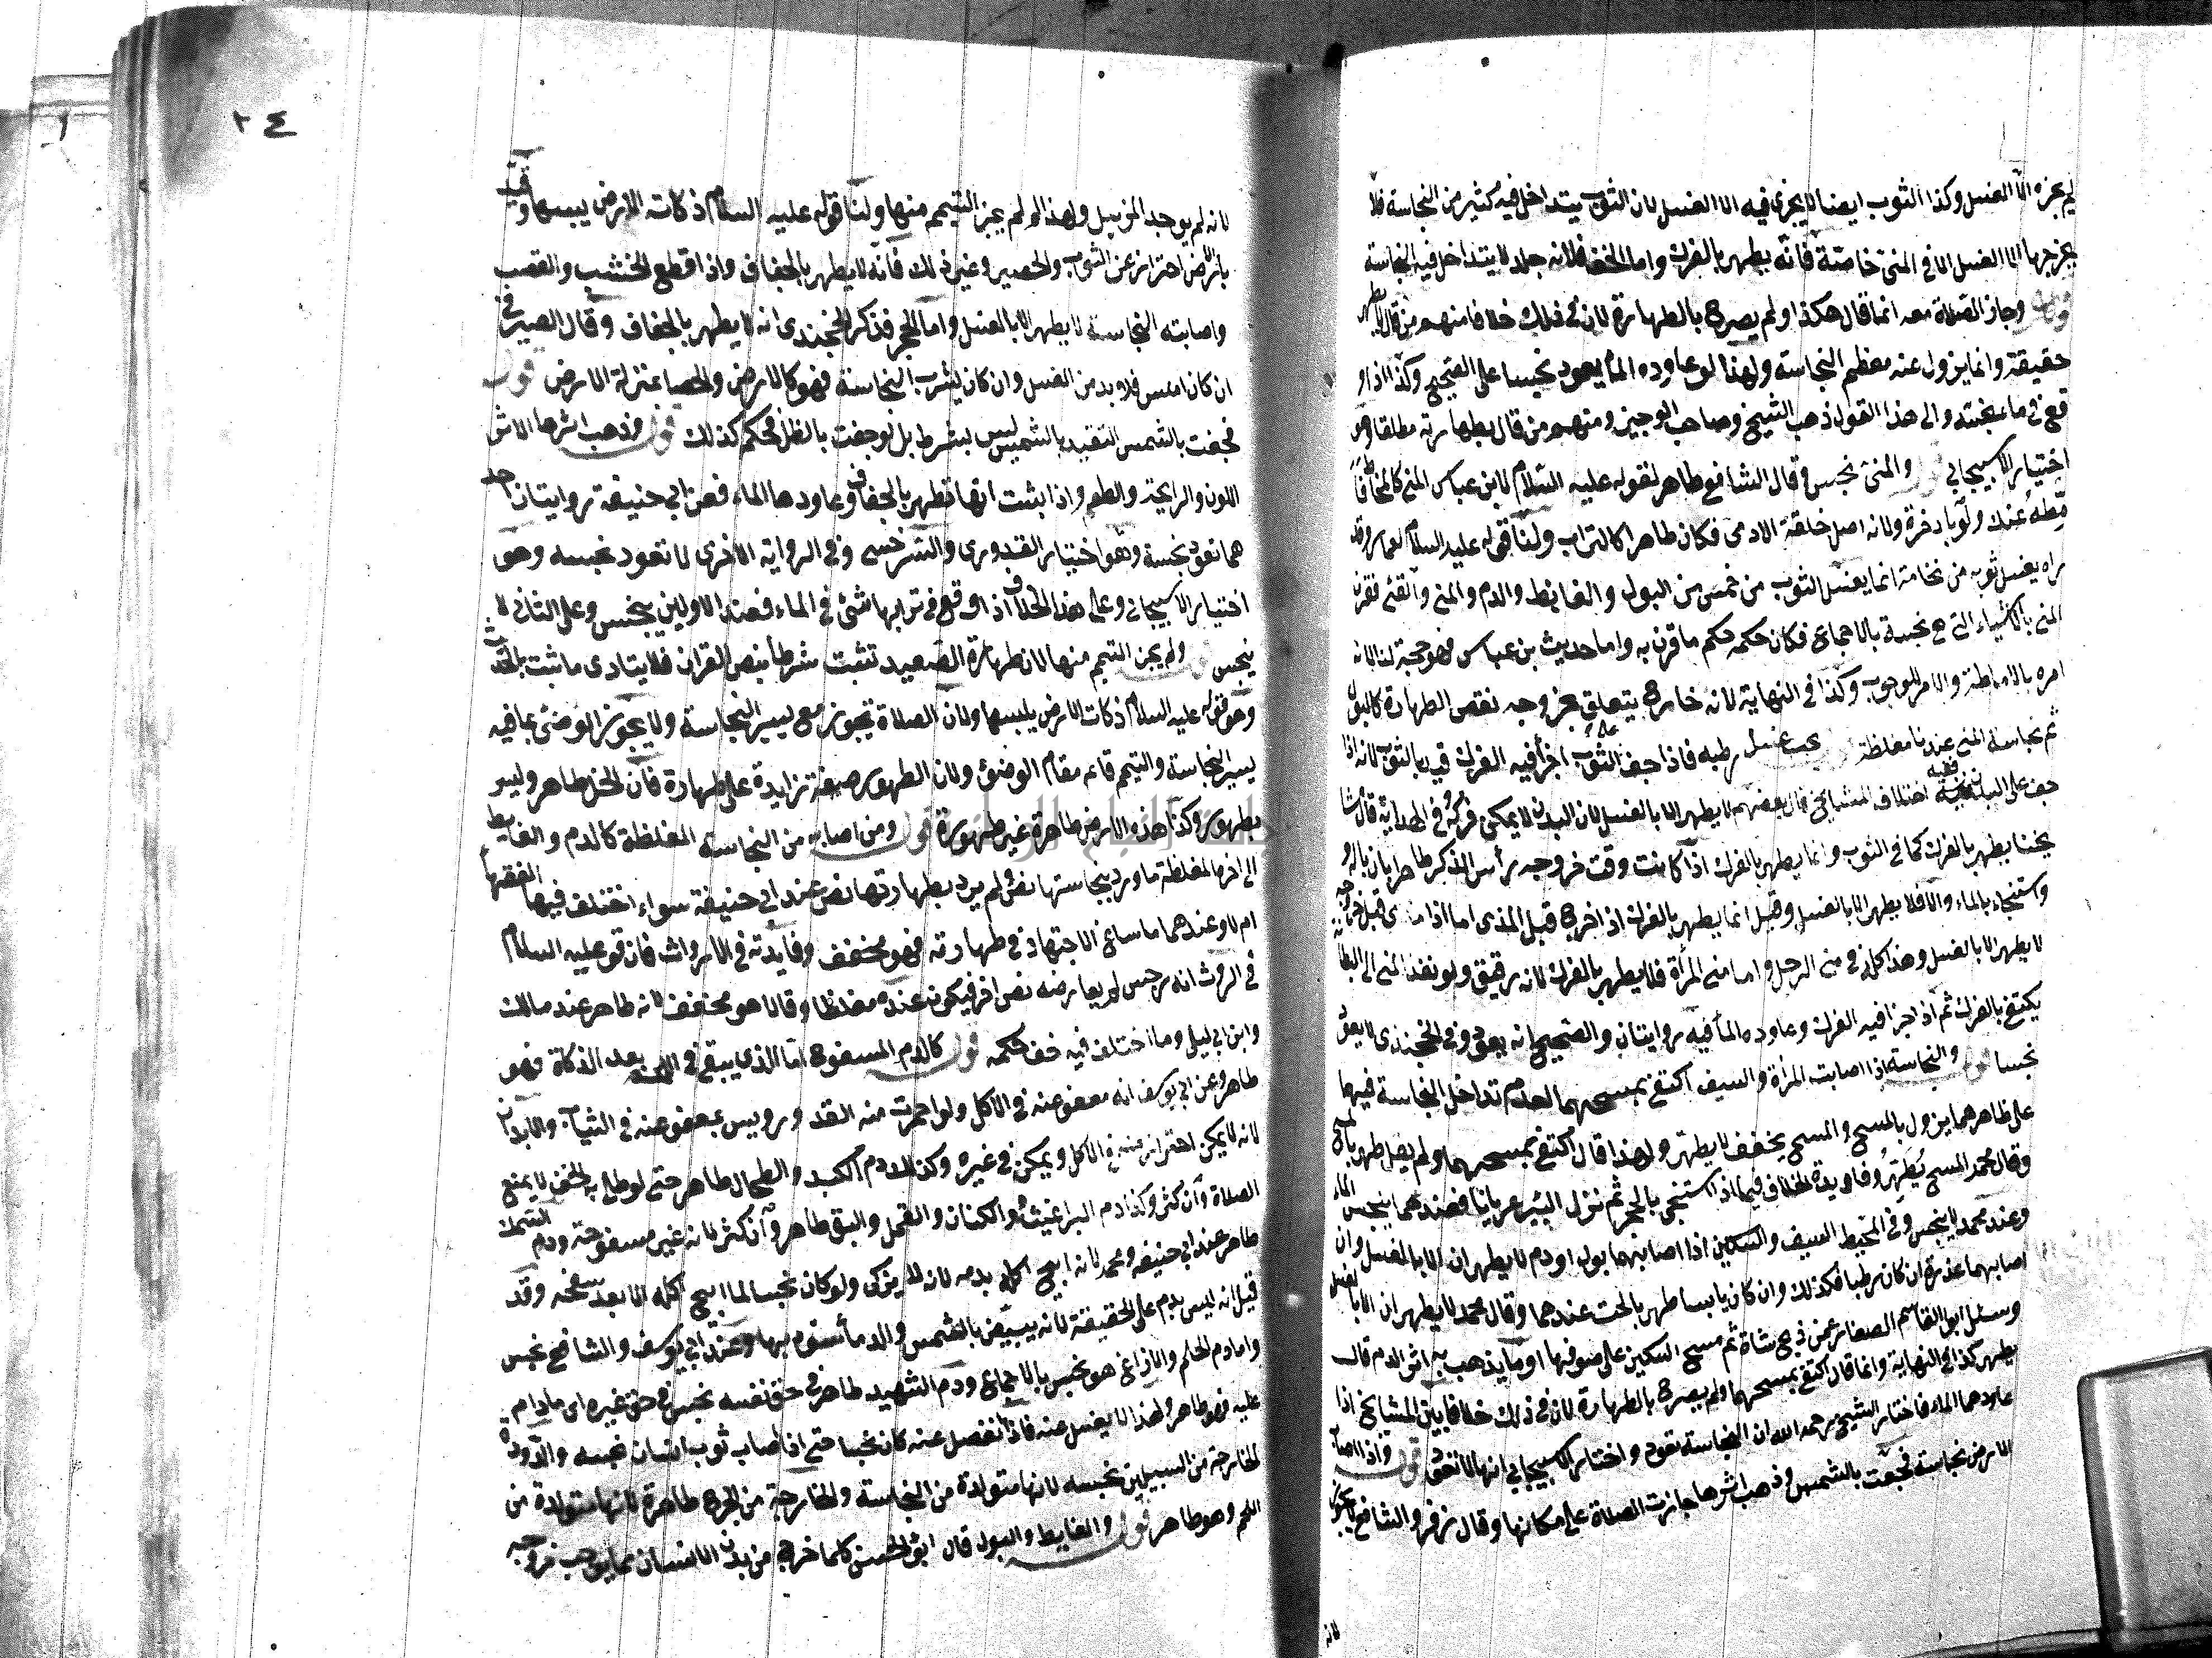 لم يجزه الا الغسل وكذا الثوب ايضا لا يجزي فيه الا الغسل لان الثوب يتداخل فيه كثير من النجاسة فلا
يخرجها الا الغسل الا في المني خاصة فانه يطهر بالفرك واما الخف فلانه جلد لا يتداخل فيه النجاسة
وجاز الصلاة معه انما قال هكذا ولم يصرح بالطهارة لان في ذلك خلافا منهم من قال لا يطهر
حقيقة وانما يزول عنه معظم النجاسة ولهذا لو عاوده الماء يعود نجيسا على الصحيح وكذا اذا و
قع في ماء نجسته والى هذا القول ذهب الشيخ وصاحب الوجيز ومنهم من قال بطهارته مطلقا وهو
اختيار الاسبيجابي والمني نجس وقال الشافع طاهر لقوله عليه السلام لابن عباس المني كالمخاط فا
مطه عنك ولو باذخرة ولانه اصل خلقة الادمي فكان طاهرا كالتراب ولنا قوله عليه السلام لعمار وقد
راه يغسل ثوبه من نخامة انما يغسل الثوب من خمس من البول والغايط والدم والمني والقئ فقرن
المني بالاشياء التي هي نجسة بالاجماع فكان حكمه حكم ما قرن به واما حديث بن عباس فهو حجة لنا لانه
امره بالاماطة والامر للوجوب وكذا في النهاية لانه خارج يتعلق بخروجه نقض الطهارة كالبول
ثم نجاسة المني عندنا مغلظة يجب غسل رطبه فاذا جف على الثوب اجزأ فيه الفرك قيد بالثوب لانه اذا
جف على البدن ففيه اختلاف المشايخ قال بعضهم لا يطهر الا بالغسل لان البدن لا يمكن فركه وفي الهداية قال مشا
يخنا يطهر بالفرك كما في الثوب وانما يطهر بالفرك اذا كانت وقت خروجه رأس الذكر طاهرا بان بال و
واستنجاء بالماء والا فلا يطهر الا بالغسل وقيل انما يطهر بالفرك اذا خرج قبل المذي اما اذا قبل خروجه
لا يطهر الا بالغسل وهذا كله في مني الرجل واما مني المرأة فلا يطهر بالفرك لانه رقيق ولو نفذ المني الى البطانة
يكتفي بالفرك ثم اذ اجزأ فيه الفرك وعاوده الماء فيه روايتان والصحيح انه يعود وفي الخجندي لا يعود
نجسا قوله والنجاسة اذا اصابت المرأة والسيف اكتفي بمسحهما لعدم تداخل النجاسة فيهما
على ظاهرهما يزول بالمسح والمسح يخفف لا يطهر ولهذا قال اكتفي بمسحهما ولم يقل طهر بالمسح
وقال محمد المسح يُطَهِّرُ وفايدة الخلاف فيما اذا استنجى بالحجر ثم نزل البئر عريانا فعندهما ينجس الماء
وعند محمد لا ينجس وفي المحيط السيف والسكين اذا اصابهما بول او دم لا يطهران الا بالغسل وان
اصابهما عذرة ان كان رطبا فكذلك وان كان يابسا طهر بالحت عندهما وقال محمد لا يطهران الا بالغسل
وسئل ابو القاسم الصفار عمن ذبح شاة ثم مسح السكين على صوفها او ما يذهب به اثر الدم قال
يطهر كذا في النهاية وانما قال اكتفي بمسحهما ولم يصرح بالطهارة لان في ذلك خلافا بين المشايخ اذا
عاودهما الماء فاختار الشيخ رحمه الله ان النجاسة تعود واختار الاسبيجابي انها لا تعود قوله واذا اصابت
الارض نجاسة فجفت بالشمس وذهب اثرها جازت الصلاة على مكانها وقال زفر والشافع لا يجوز
لانه
٢٤
لانه لم يوجد المزيل ولهذا لم يجز التيمم منها ولنا قوله عليه السلام ذكات الارض يبسها وقيد
بالارض احتراز عن الثوب والحصير وغير ذلك فانه لا يطهر بالجفاف واذا قطع الخشب والقصب
واصابته النجاسة لا يطهر الا بالغسل واما الحجر فذكر الخجندي انه لا يطهر بالجفاف وقال الصيرفي
ان كان املس فلا بد من الغسل وان كان يشرب النجاسة فهو كالارض والحصا بمنزلة الارض قوله
فجفت بالشمس التقيد بالشمس ليس بشرط بل لو جفت بالظل فحكم كذلك قوله وذهب اثرها الاثر
اللون والرايحة والطعم واذا بثت انها تطهر بالجفاف وعاودها الماء فعن ابي حنيفة روايتان احد
هما تعود نجسة وهو اختيار القدوري والسرخسي وفي الرواية الاخرى لا تعود نجسه وهو
اختيار الاسبيجابي وعلى هذا الخلاف اذا وقع في ترابها شئ في الماء فعند الاولين ينجس وعلى الثاني لا
ينجس قوله ولم يجز التيمم منها لان طهارة الصعيد تثبت شرطا بنص القران فلا يتادى ما ثبت بالحديث
وهو قوله عليه السلام ذكات الارض يبسها ولان الصلاة تجوز مع يسير النجاسة ولا يجوز الوضئ بما فيه
يسير النجاسة والتيمم قائم مقام الوضئ ولان الطهور صفة زايدة على طهارة فان الخل طاهر وليس
بطهور وكذا هذه الارض طاهرة غير طهورة قوله ومن اصابه من النجاسة المغلظة كالدم والغايط
الى اخره المغلظة ما ورد بنجاستها نص ولم يرد بطهارتها نص عند ابي حنيفة سواء اختلف فيها الفقهاء
ام لا وعندهما ما ساغ الاجتهاد في طهارته فهو مخفف وفايدته في الارواث فان قوله عليه السلام
في الروث انه رجس لم يعارضه نص اخر فيكون عنده مغلظا وقالا هو مخفف لانه طاهر عند مالك
وابن ابي ليلى وما اختلف فيه خف حكمه قوله كالدم المسفوح اما الذي يبقى في اللحم بعد الذكاة فهو
طاهر وعن ابي يوسف انه معفو عنه في الاكل ولو احمرت منه القدر وليس بمعفو عنه في الثياب والابدان
لانه لا يمكن احتراز منه في الاكل ويمكن في غيره وكذلك دم الكبد والطحال طاهر حتى لو طلي به الخف لا يمنع
الصلاة وان كثر وكذا دم البراغيث والكتان والقمل والبق طاهر وان كثر لانه غير مسفوحة ودم السمك
طاهر عند ابي حنيفه ومحمد لانه ابيح اكله بدمه لانه لا يزكى ولو كان نجسا لما ابيح اكله الا بعد سفحه وقد
قيل انه ليس بدم على الحقيقة لانه يبيض بالشمس والدماء تسود بها وعند ابي يوسف والشافع نجس
واما دم الحلم والاوزاغ هو نجس بالاجماع ودم الشهيد طاهر في حق نفسه نجس في حق غيره اي مادام
عليه فهو طاهر ولهذا لا يغسل عنه فاذا انفصل عنه كان نجسا حتى اذا اصاب ثوب انسان نجسه والدودة
الخارجة من السبيلين نجسه لانها متولدة من النجاسة والخارجة من الجرح طاهرة لانها متولدة من
اللحم وهو طاهر قوله والغايط والبول قال ابو الحسن كلما خرج من بدن الانسان مما يوجب خروجه